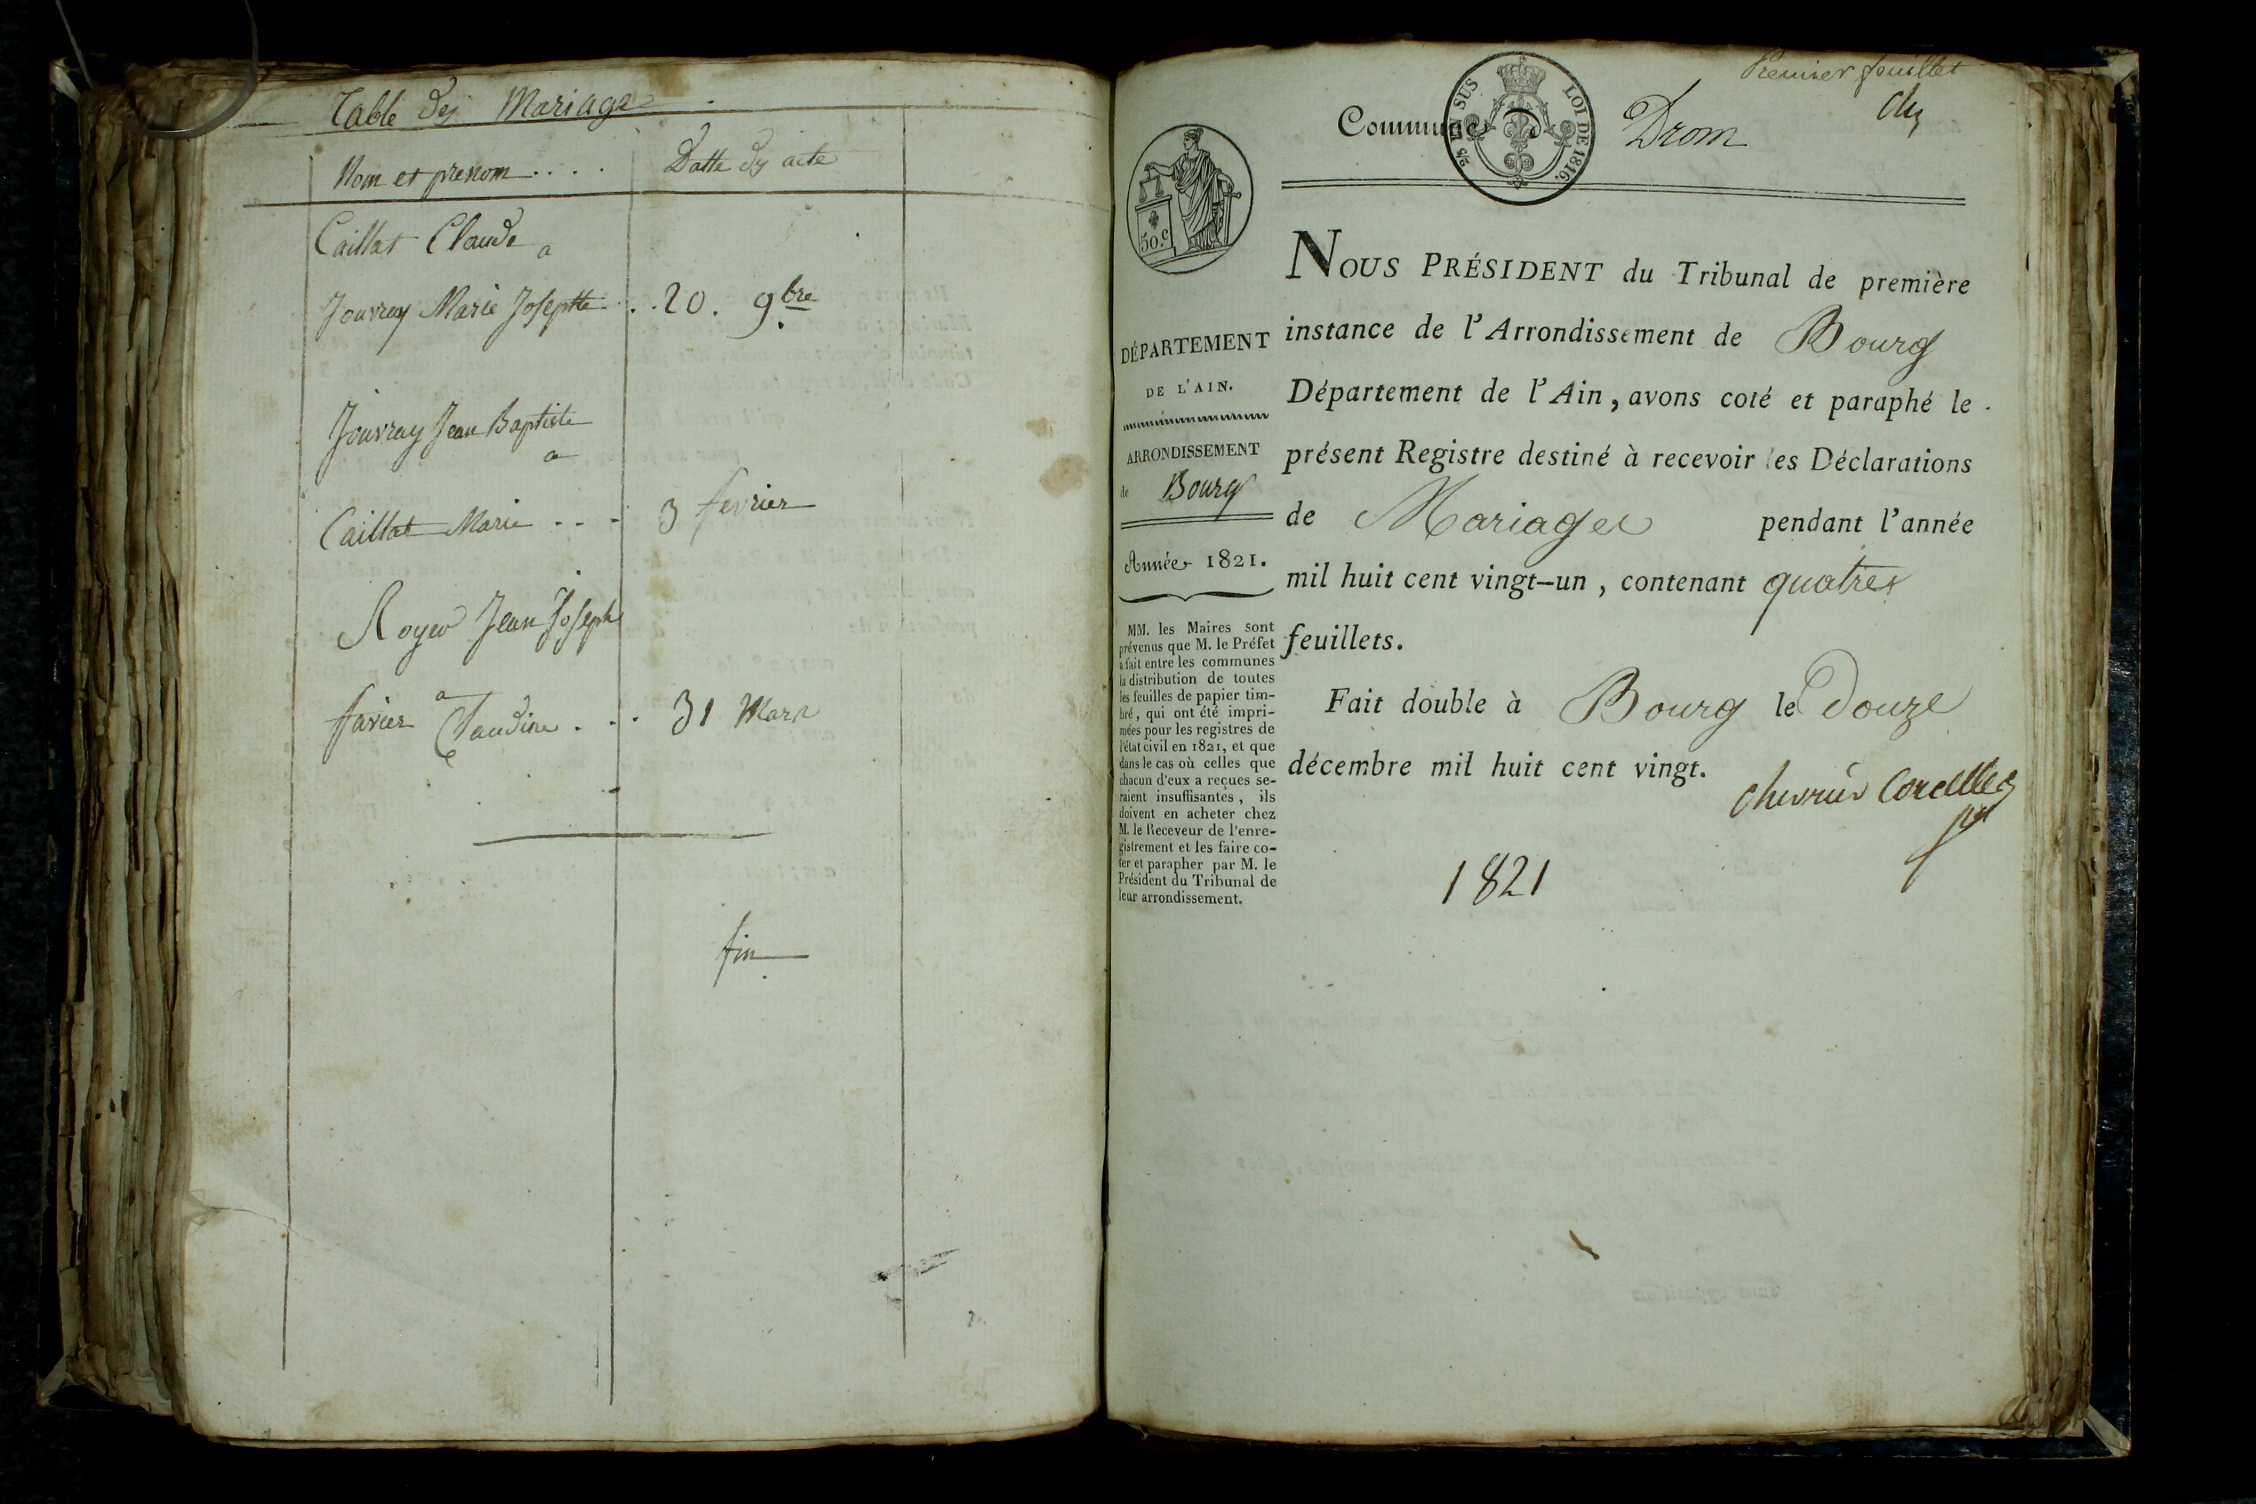 Table des Mariage
Nom et prenom .... Datte des acte
Caillat Claude
a
Jouvray Marie Josephte . . 20. 9bre
Jouvray Jean Baptiste
a
Caillat Marie . . . 3 fevrier
Royer Jean Joseph
a
favier Claudine . . . 31 Mars
fin
Premier feuillet
Commune D Drom
2/5 EN SUS
LOI DE 1816.
50.c
DÉPARTEMENT
DE L'AIN.
ARRONDISSEMENT
de Bourg
Année 1821.
MM. les Maires sont
prévenus que M. le Préfet
a fait entre les communes
la distribution de toutes
les feuilles de papier tim-
bré, qui ont été impri-
mées pour les registres de
l'état civil en 1821, et que
dans le cas où celles que
chacun d'eux a reçues se-
raient insuffisantes, ils
doivent en acheter chez
M. le Receveur de l'enre-
gistrement et les faire co-
ter et parapher par M. le
Président du Tribunal de
leur arrondissement.
NOUS PRÉSIDENT du Tribunal de première
instance de l'Arrondissement de Bourg
Département de l'Ain, avons coté et paraphé le
présent Registre destiné à recevoir les Déclarations
de Mariages pendant l'année
mil huit cent vingt-un, contenant quatre
feuillets.
Fait double à Bourg le Douze
décembre mil huit cent vingt.
Chevrier Corcelles
1821